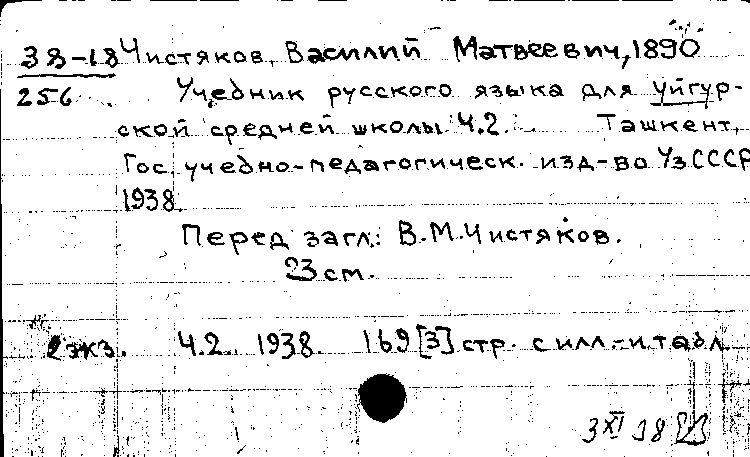 38-18 Чистяков, Василий Матвеевич, 1890
256 Учебник русского языка для уйгур-
ской средней школы. Ч.2. Ташкент,
Гос. учебно-педагогическ. изд-во УзСССР
1938.
Перед загл.: В.М.Чистяков.
23 см.
2 экз. Ч.2. 1938. 169 [3] стр. с илл.-и табл.
3 XI 38